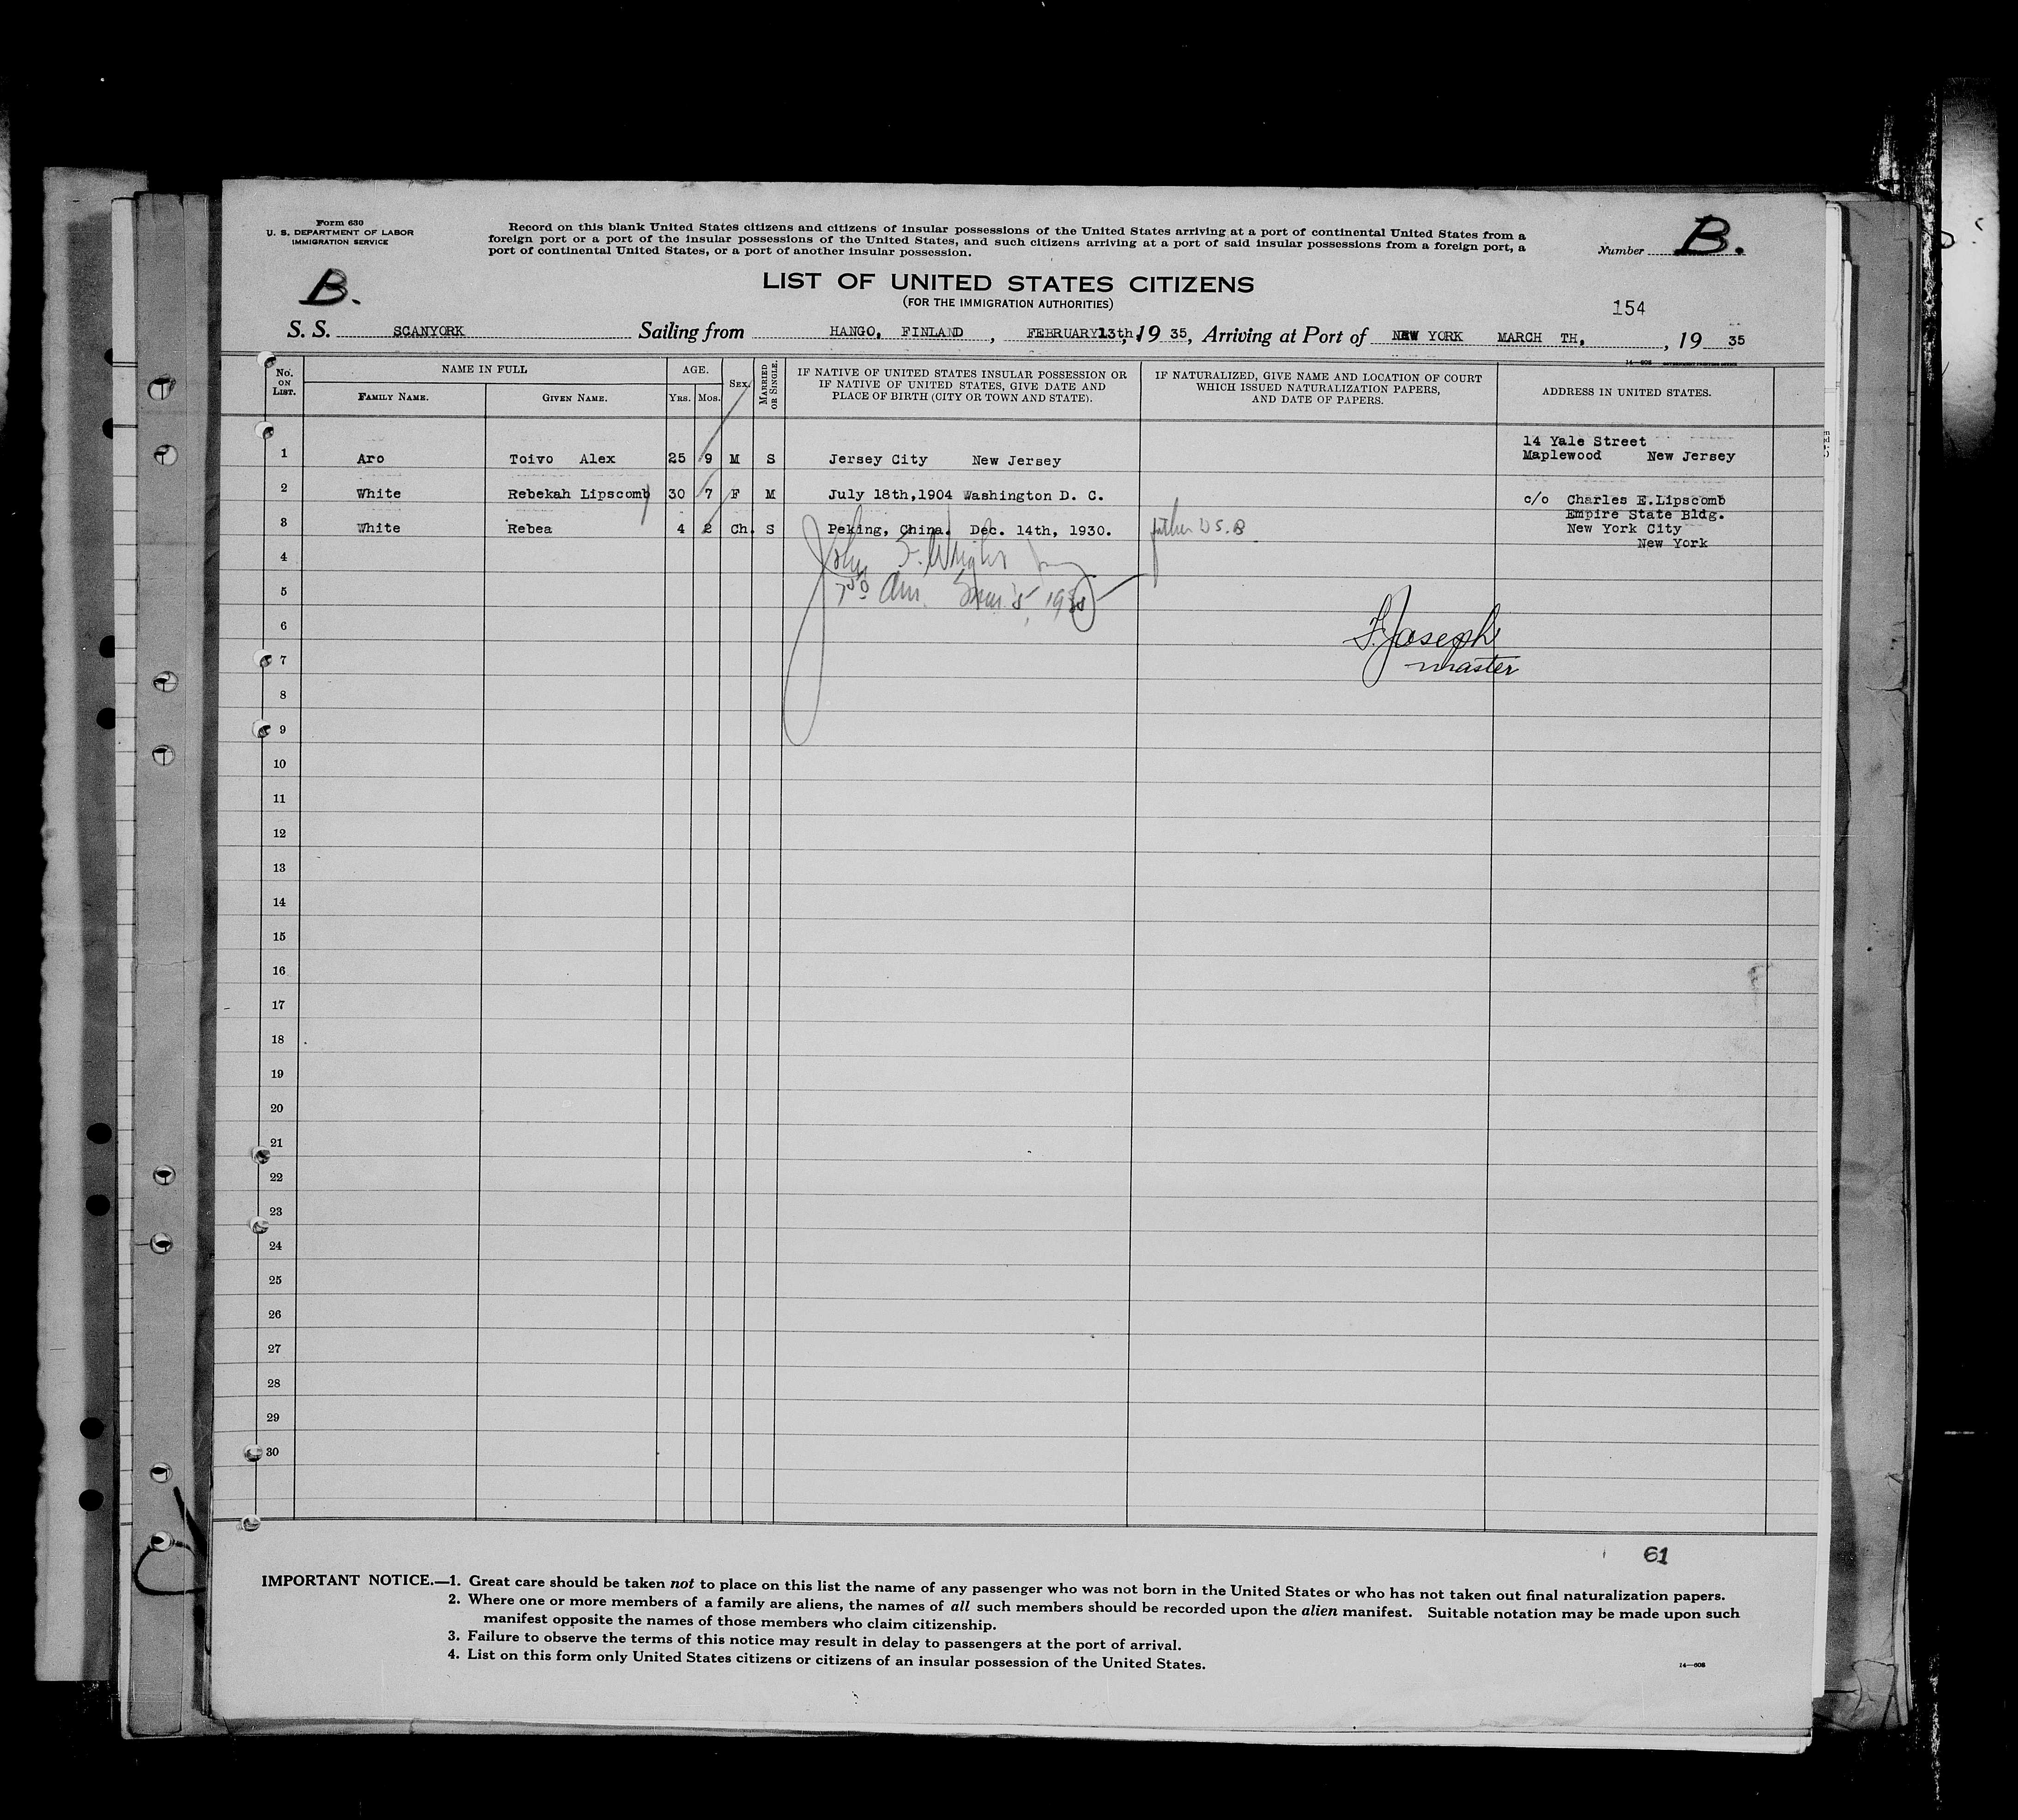 Form 630
U. S. DEPARTMENT OF LABOR
IMMIGRATION SERVICE
Record on this blank United States citizens and citizens of insular possessions of the United States arriving at a port of continental United States from a
foreign port or a port of the insular possessions of the United States, and such citizens arriving at a port of said insular possessions from a foreign port, a
port of continental United States, or a port of another insular possession.
Number B.
B.
LIST OF UNITED STATES CITIZENS
(FOR THE IMMIGRATION AUTHORITIES)
154
S. S. SCANYORK Sailing from HANGO, FINLAND, FEBRUARY 13th, 19 35, Arriving at Port of NEW YORK MARCH TH, , 19 35
14—608 GOVERNMENT PRINTING OFFICE
No. ON LIST. NAME IN FULL AGE. SEX. MARRIED OR SINGLE. IF NATIVE OF UNITED STATES INSULAR POSSESSION OR IF NATIVE OF UNITED STATES, GIVE DATE AND PLACE OF BIRTH (CITY OR TOWN AND STATE). IF NATURALIZED, GIVE NAME AND LOCATION OF COURT WHICH ISSUED NATURALIZATION PAPERS, AND DATE OF PAPERS. ADDRESS IN UNITED STATES.
FAMILY NAME. GIVEN NAME. YRS. MOS.
14 Yale Street
1 Aro Toivo Alex 25 9 M S Jersey City New Jersey Maplewood New Jersey
2 White Rebekah Lipscomb 30 7 F M July 18th,1904 Washington D. C. c/o Charles E.Lipscomb
Empire State Bldg.
3 White Rebea 4 2 Ch. S Peking, China. Dec. 14th, 1930. father U S. B New York City
New York
4 John F. Wright
5 Arr. 1935
6 F. Joseph
7 master
8
9
10
11
12
13
14
15
16
17
18
19
20
21
22
23
24
25
26
27
28
29
30
61
IMPORTANT NOTICE.—1. Great care should be taken not to place on this list the name of any passenger who was not born in the United States or who has not taken out final naturalization papers.
2. Where one or more members of a family are aliens, the names of all such members should be recorded upon the alien manifest. Suitable notation may be made upon such
manifest opposite the names of those members who claim citizenship.
3. Failure to observe the terms of this notice may result in delay to passengers at the port of arrival.
4. List on this form only United States citizens or citizens of an insular possession of the United States.
14—608